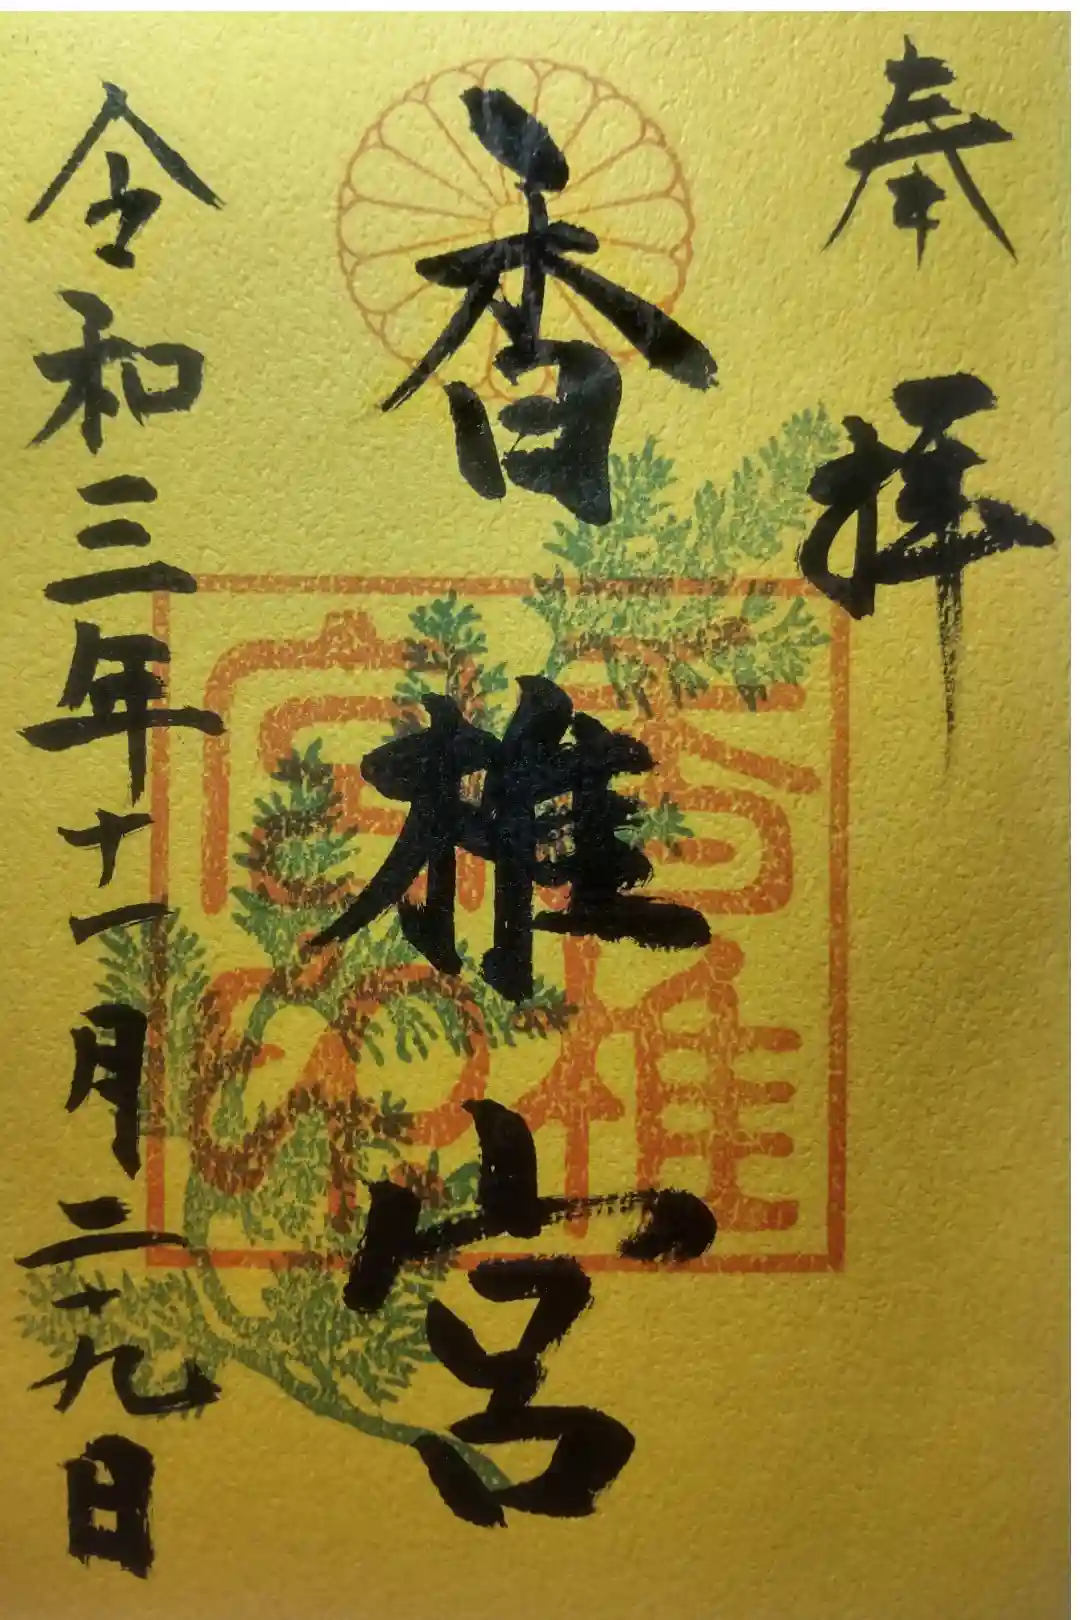 奉拝
香椎宮
令和三年十一月二十九日
香椎宮印